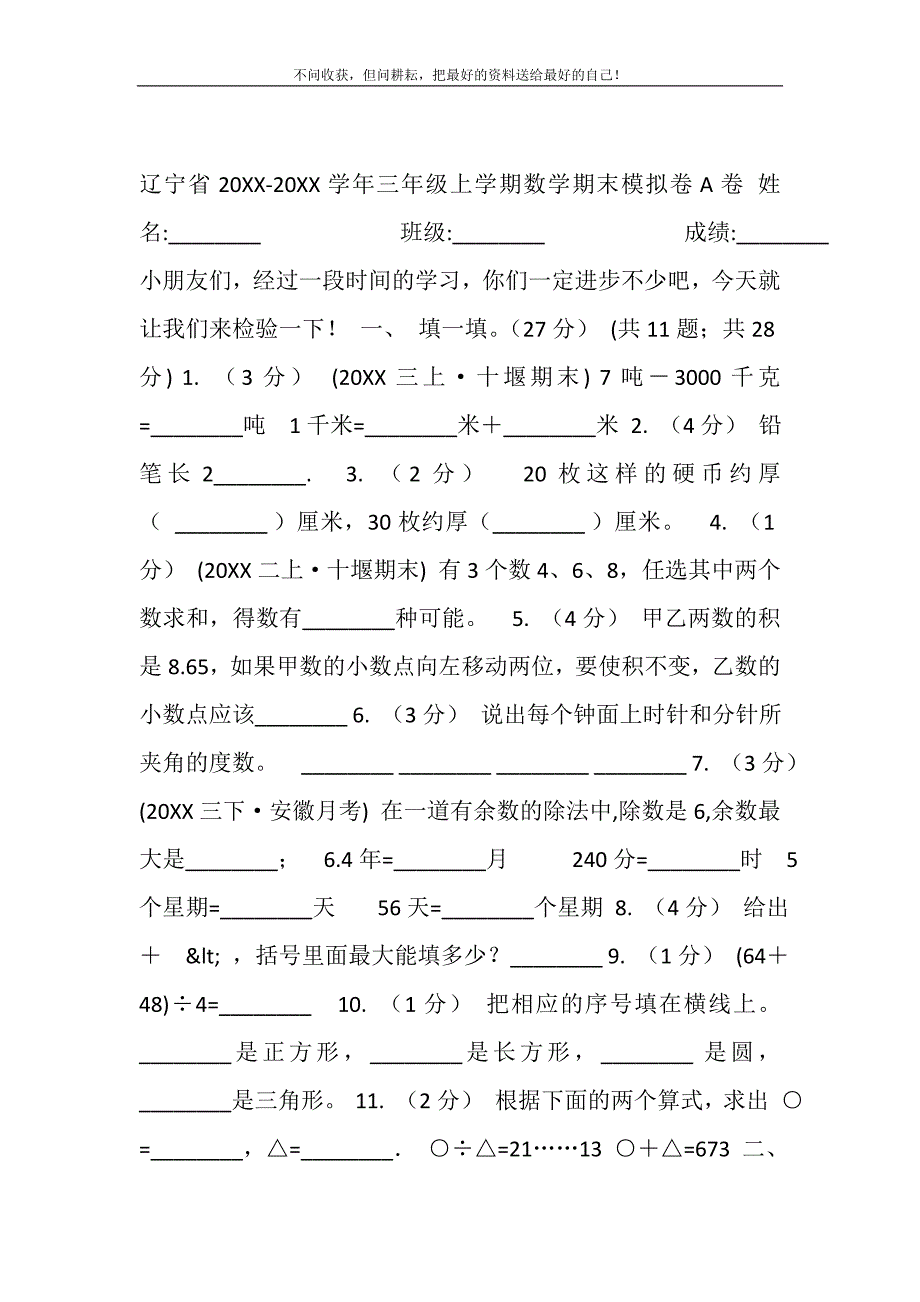 不问收获，但问耕耘，把最好的资料送给最好的自己！
辽宁省 20XX-20XX 学年三年级上学期数学期末模拟卷 A 卷 姓
名:________ 班级:________ 成绩:________
小朋友们，经过一段时间的学习，你们一定进步不少吧，今天就
让我们来检验一下！ 一、 填一填。（27 分） (共 11 题；共 28
分) 1. （3 分） (20XX 三上·十堰期末) 7 吨－3000 千克
=________吨 1 千米=________米＋________米 2. （4 分） 铅
笔长 2________. 3. （2 分） 20 枚这样的硬币约厚
（ ________ ）厘米，30 枚约厚（________ ）厘米。 4. （1
分） (20XX 二上·十堰期末) 有 3 个数 4、6、8，任选其中两个
数求和，得数有________种可能。 5. （4 分） 甲乙两数的积
是 8.65，如果甲数的小数点向左移动两位，要使积不变，乙数的
小数点应该________ 6. （3 分） 说出每个钟面上时针和分针所
夹角的度数。 ________ ________ ________ ________ 7. （3 分）
(20XX 三下·安徽月考) 在一道有余数的除法中,除数是 6,余数最
大是________； 6.4 年=________月 240 分=________时 5
个星期=________天 56 天=________个星期 8. （4 分） 给出
＋ &lt; ，括号里面最大能填多少？________ 9. （1 分） (64＋
48)÷4=________ 10. （1 分） 把相应的序号填在横线上。
________是正方形，________是长方形，________ 是圆，
________是三角形。 11. （2 分） 根据下面的两个算式，求出 〇
=________，△=________． 〇÷△=21……13 〇＋△=673 二、